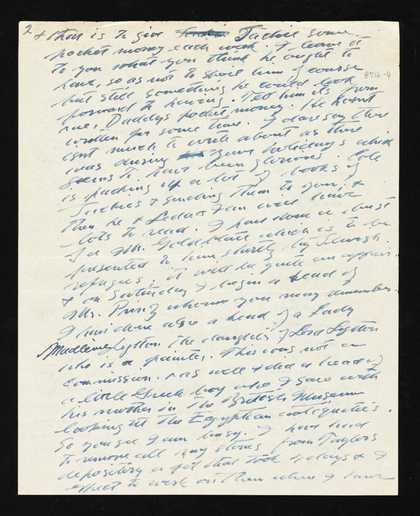 2
& that is to give Jackie some
pocket money each week. I leave it
to you what you think he ought to
have, so as not to spoil him of course
but still something he could look
forward to having. Tell him its from
me, Daddy's pocket money. He hasn't
written for some time. I daresay there
isnt much to write about as there
was during your holidays which
seems to have been glorious. Lole
is packing up a lot of books of
Jackie's & sending them to you, &
then he & Leda & I am will have
lots to read. I have done a bust
of a Mr. Goldblatt which is to be
presented to him shortly by Jewish
refugees, it will be quite an affair.
& on Saturday I begin a head of
Mr. whom you may remember.
I have done also a head of a Lady
Madeleine Lytton the daughter of Lord Lytton
who is a painter. This was not a
commission. & as well I did a head of
a little Greek boy who I saw with
his mother in the British Museum
looking at the Egyptian antiquities.
So you see I am busy. I have had
to remove all my stones from Taylors
depository & all that took 4 days & I
expect to work on them when I have
8716-9